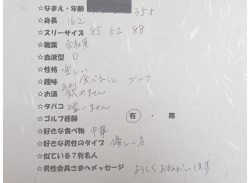 ☆なまえ・年齢 35才
☆身長 162
☆スリーサイズ 85 62 88
☆職業 会社員
☆血液型 O
☆性格 優しい
☆趣味 食べること ゴルフ
☆お酒 飲めません
☆タバコ 吸いません
☆ゴルフ経験 有・無
☆好きな食べ物 中華
☆好きな男性のタイプ 優しい方
☆似ている?有名人
☆男性会員さまへメッセージ よろしくお願いします